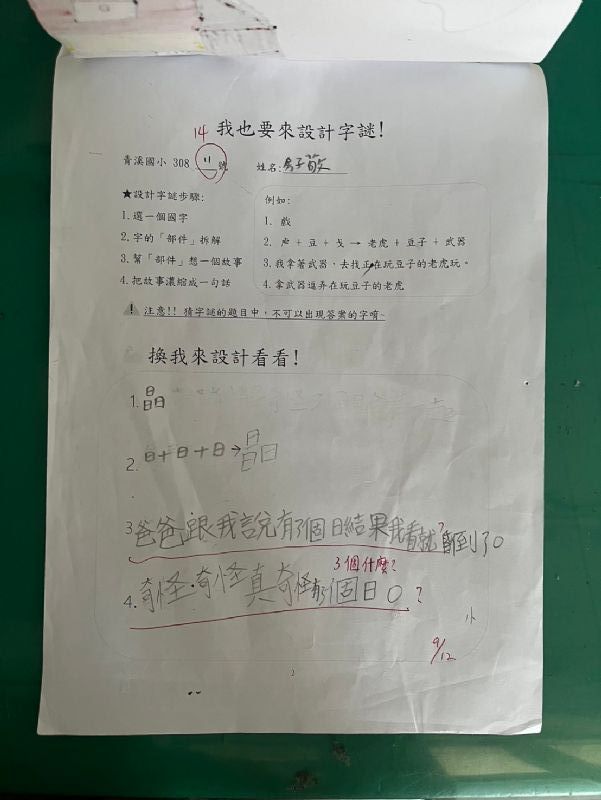 14 我也要來設計字謎!
青溪國小 308 11 號 姓名:
★設計字謎步驟:
1.選一個國字
2.字的「部件」拆解
3.幫「部件」想一個故事
4.把故事濃縮成一句話
例如:
1. 戲
2. 虍 + 豆 + 戈 → 老虎 + 豆子 + 武器
3.我拿著武器,去找正在玩豆子的老虎玩。
4.拿武器逼弄在玩豆子的老虎
! 注意!! 猜字謎的題目中,不可以出現答案的字唷~
換我來設計看看!
1.晶
2.日+日+日→晶
3爸爸跟我說有3個日結果我看就 到了。
3個什麼?
4.奇怪奇怪真奇怪有3個日。?
9/12
2